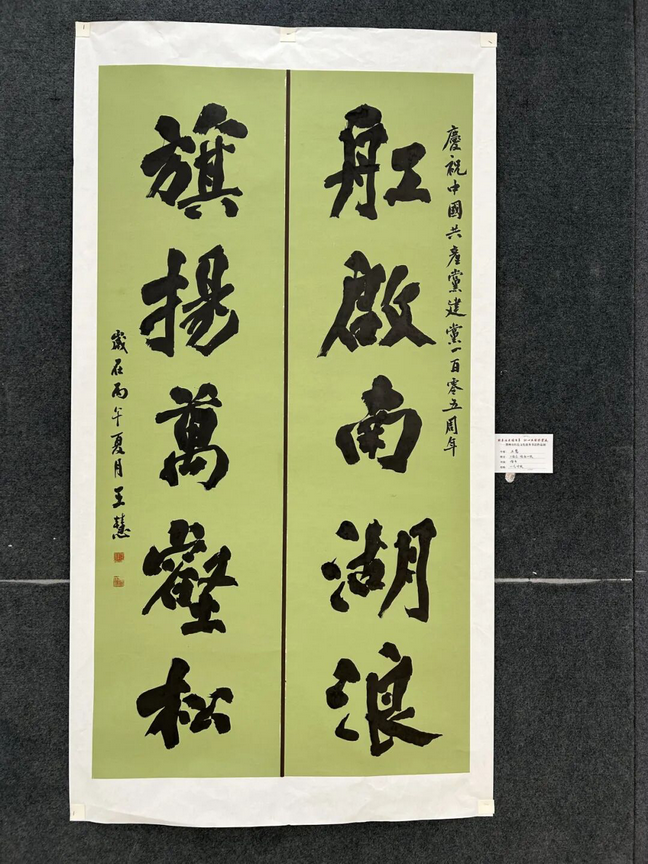 慶祝中國共產黨建黨一百零五周年
舡啟南湖浪
旗揚萬壑松
歲在丙午夏月王慧